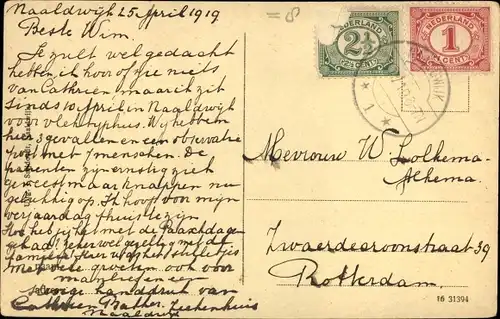 Naaldwijk 25 April 1919
Beste Wim.
Je zult wel gedacht
hebben, ik hoor of zie niets
van Cathrien maar ik zit
sinds 10 April in Naaldwijk
voor vlektyphus. Wij hebben
hier 3 gevallen en een observatie
post met 7 menschen. De
patienten zijn ernstig ziek
geweest maar knappen nu
gelukkig op. Ik hoop voor mijn
verjaardag thuis te zijn
Hoe heb jij het met de Paaschdagen
gehad? Zeker wel gezellig met de
familie. Hier was het
Met beste groeten ook voor
man en
een handdruk van
Cathrien Bakker. Ziekenhuis
Naaldwijk
NEDERLAND
2½
CENT
NEDERLAND
1
CENT
Mevrouw W. Lolkema-
Alkema.
Zwaerdecroonstraat 39
Rotterdam.
16 31394